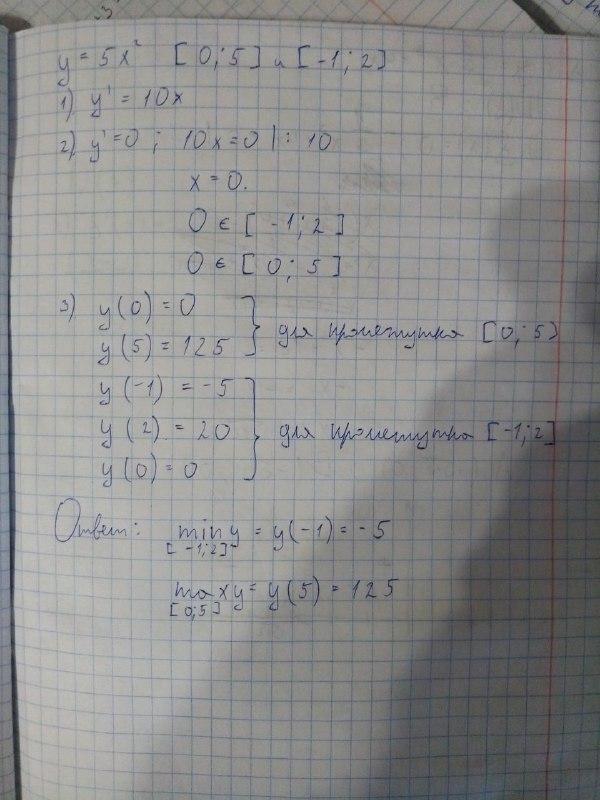 y = 5x² [0; 5] и [-1; 2]
1) y' = 10x
2) y' = 0 ; 10x = 0 | : 10
x = 0.
0 ∈ [-1; 2]
0 ∈ [0; 5]
3) y(0) = 0
y(5) = 125
} для промежутка [0; 5)
y(-1) = -5
y(2) = 20
y(0) = 0
} для промежутка [-1; 2]
Ответ: min y = y(-1) = -5
[-1; 2]
max y = y(5) = 125
[0; 5]